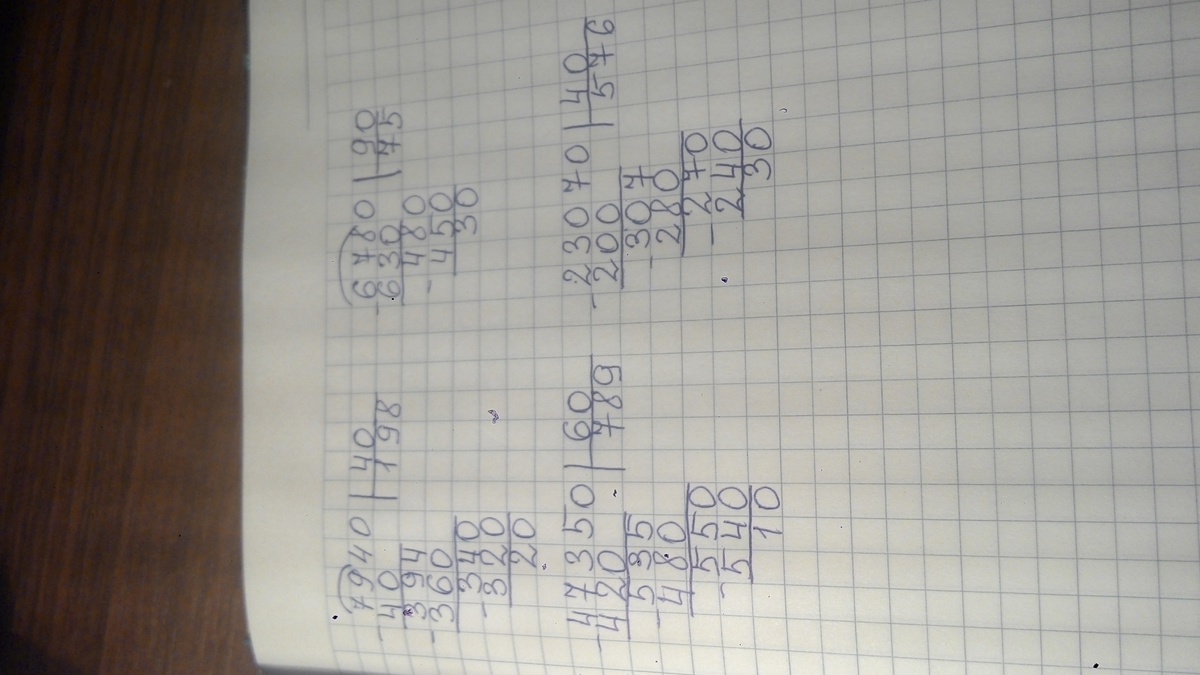 7940 | 40
- 40 | 198
394
- 360
340
- 320
20

- 6780 | 90
630 | 75
- 480
450
30

- 47350 | 60
420 | 789
- 535
480
550
- 540
10

- 23070 | 40
200 | 576
- 307
280
- 270
240
30